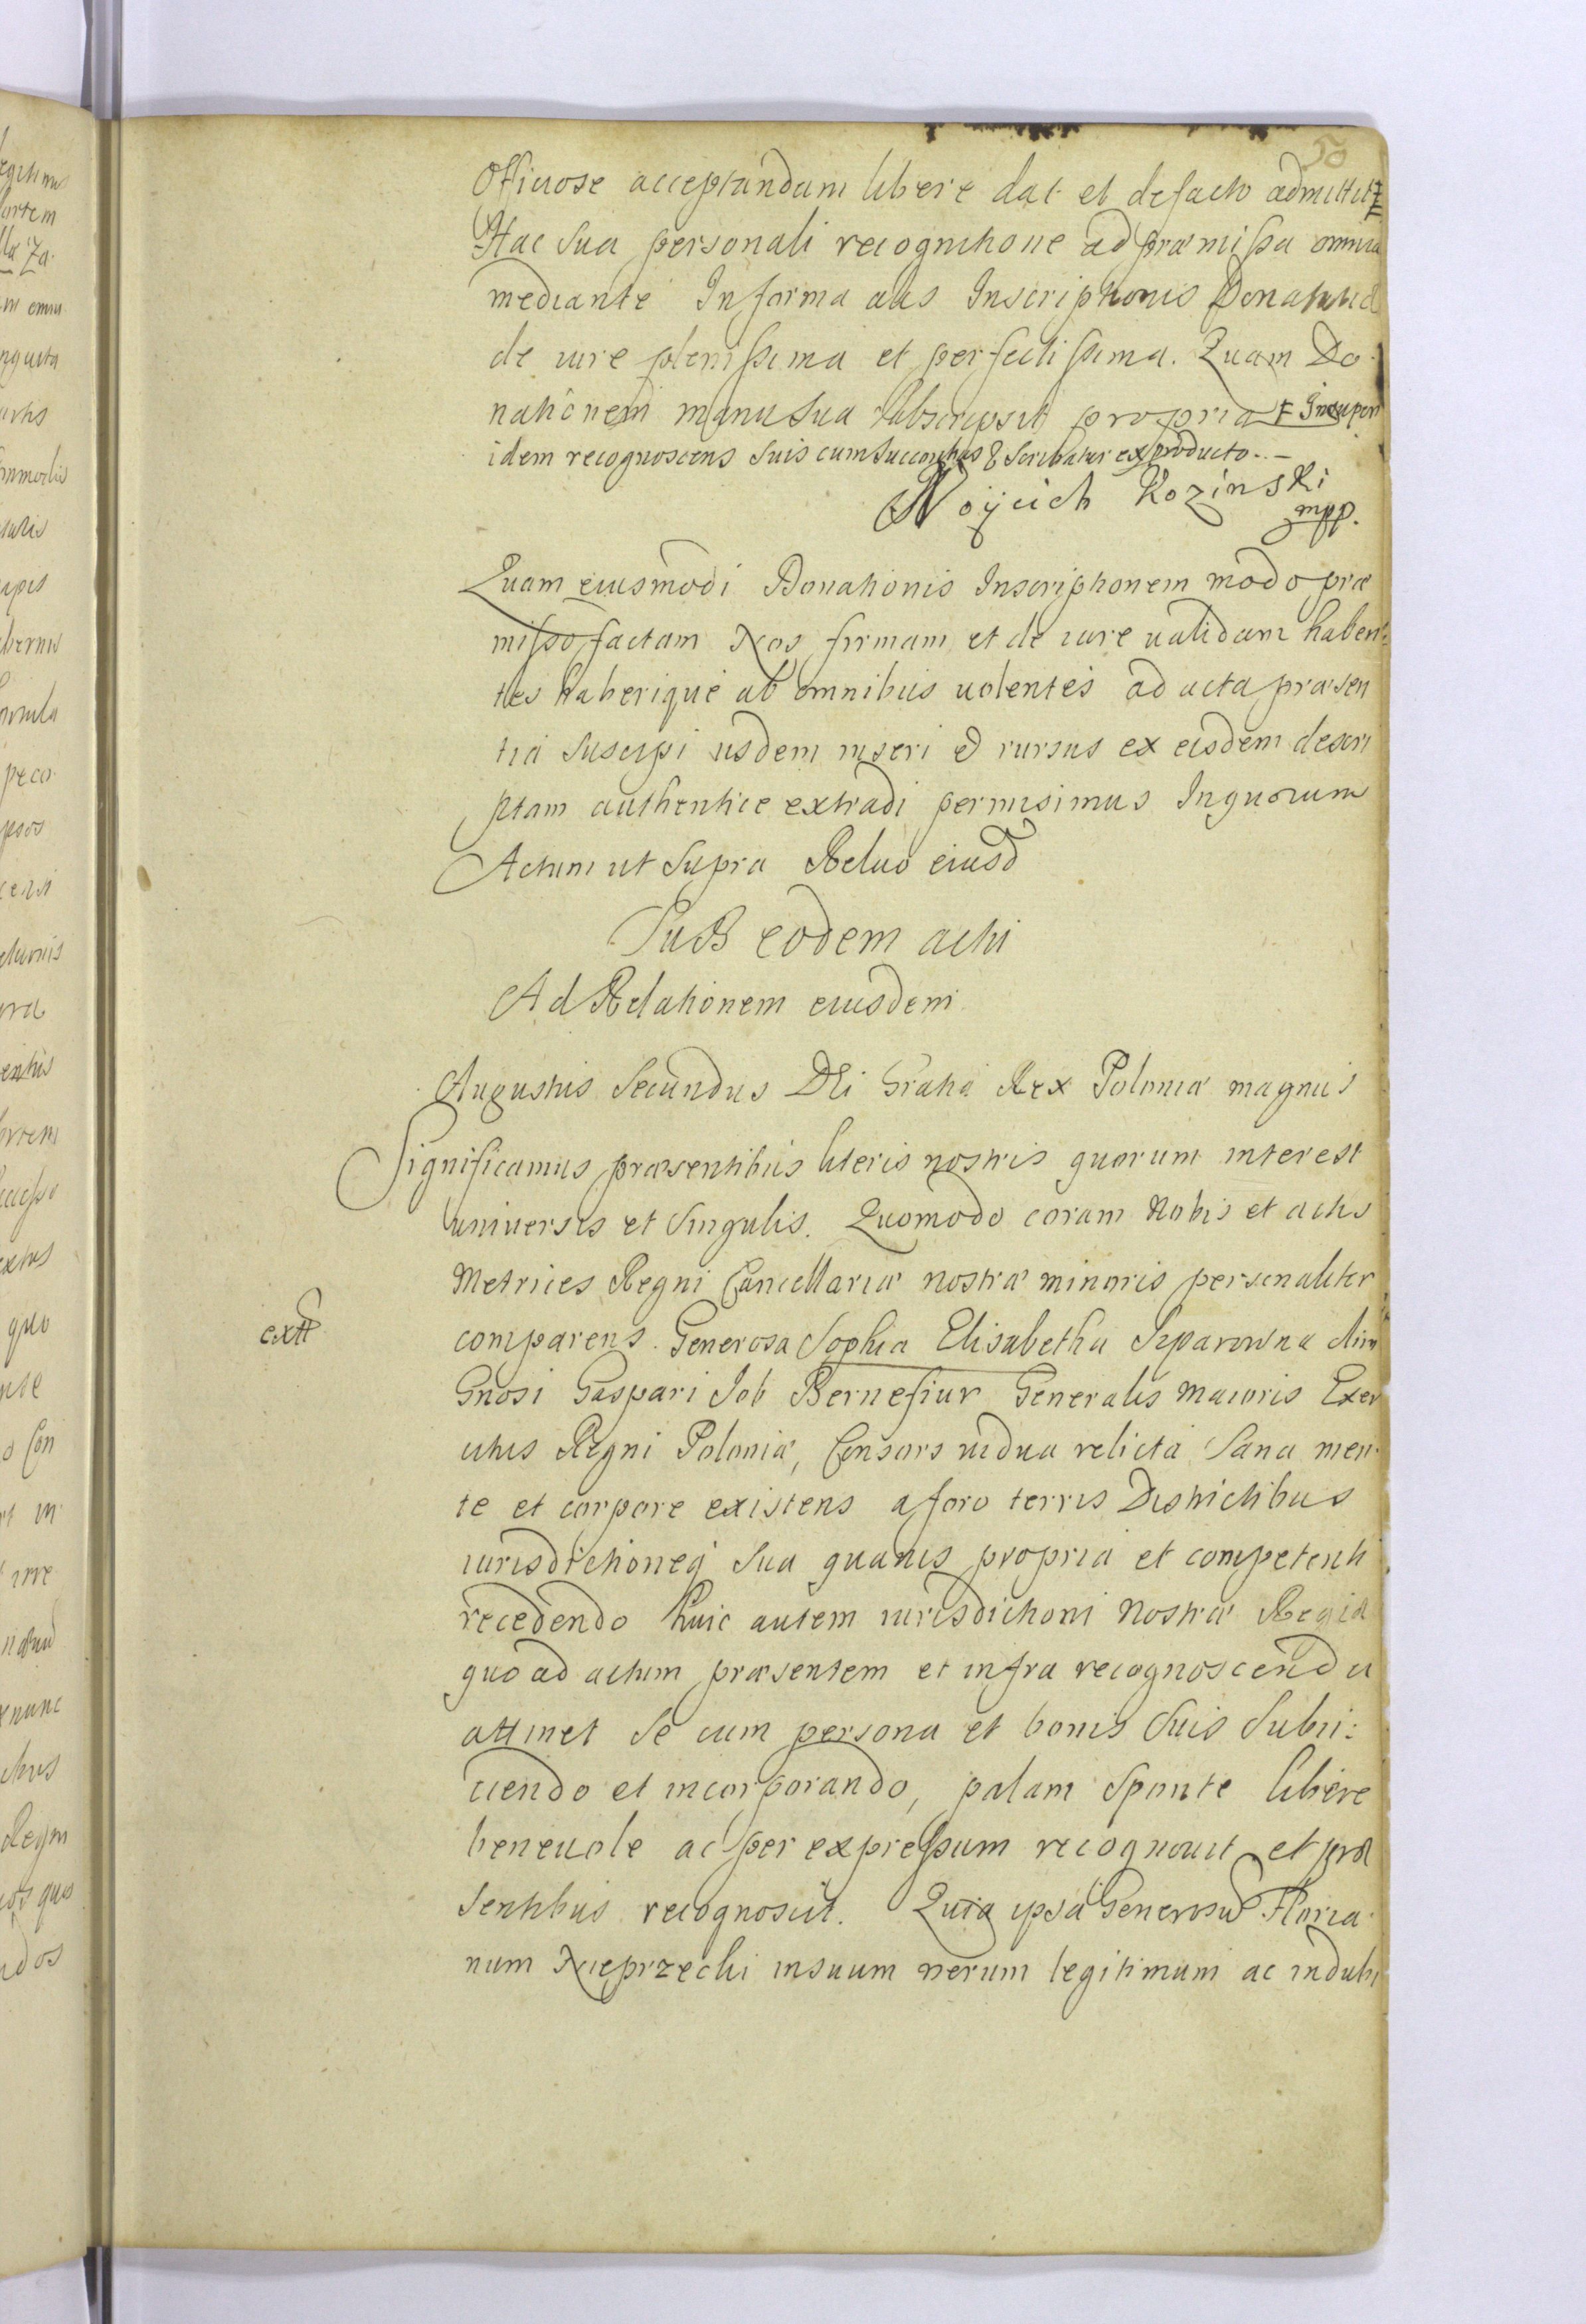 50
Officiose acceptandam libere dat et defacto admittit ≠
Hac sua personali recognitione ad præmissa omnia
mediante In forma alias Inscriptionis Donatitiæ
de iure plenissima et perfectissima. Quam Do
nationem manu sua subscripsit propria ≠ Insuper
idem recognoscens suis cum Successoribus & scribatur ex producto.–
Woyciech Kozinski
mpp.
Quam eiusmodi Donationis Inscriptionem modo præ
misso factam Nos firmam et de iure ualidam haben:
tes haberique ab omnibus uolentes ad acta præsen
tia suscipi iisdem inseri & rursus ex eisdem descri
ptam authentice extradi permisimus Inquorum
Actum ut Supra Relatio eiusd
Sub eodem actu
Ad Relationem eiusdem
Augustus Secundus DEi Gratia Rex Poloniæ magnus
Significamus præsentibus literis nostris quorum interest
universis et singulis. Quomodo coram Nobis et actis
Metrices Regni Cancellariæ nostræ minoris personaliter
extt
comparens. Generosa Sophia Elisabetha Szparowna olim
Gnosi Gaspari Job Bernefiur Generalis Maioris Exer
citus Regni Poloniæ, Consors uidua relicta sana men
te et corpore existens a foro terris Districtibus
iurisdictioneq sua quauis propria et competenti
recedendo huic autem iurisdictioni Nostræ Regiæ
quo ad actum præsentem et infra recognoscenda
attinet se cum persona et bonis suis subii:
ciendo et incorporando, palam sponte libere
beneuole ac per expressum recognouit et præ
sentibus recognoscit. Quia ipsa Generosū Floria
num Nieprzecki in suum uerum legitimum ac indubi